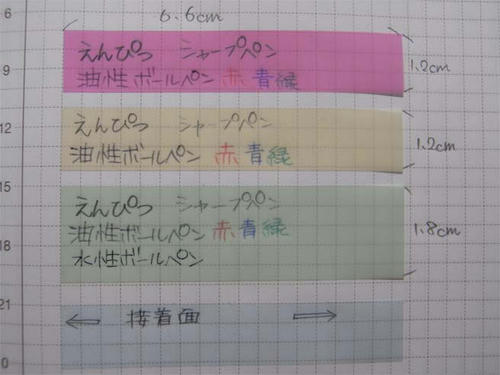 6
6.6cm
えんぴつ シャープペン
1.2cm
9
油性ボールペン 赤 青 緑
12
えんぴつ シャープペン
1.2cm
油性ボールペン 赤 青 緑
15
えんぴつ シャープペン
油性ボールペン 赤 青 緑
1.8cm
18
水性ボールペン
21
← 接着面 →
0